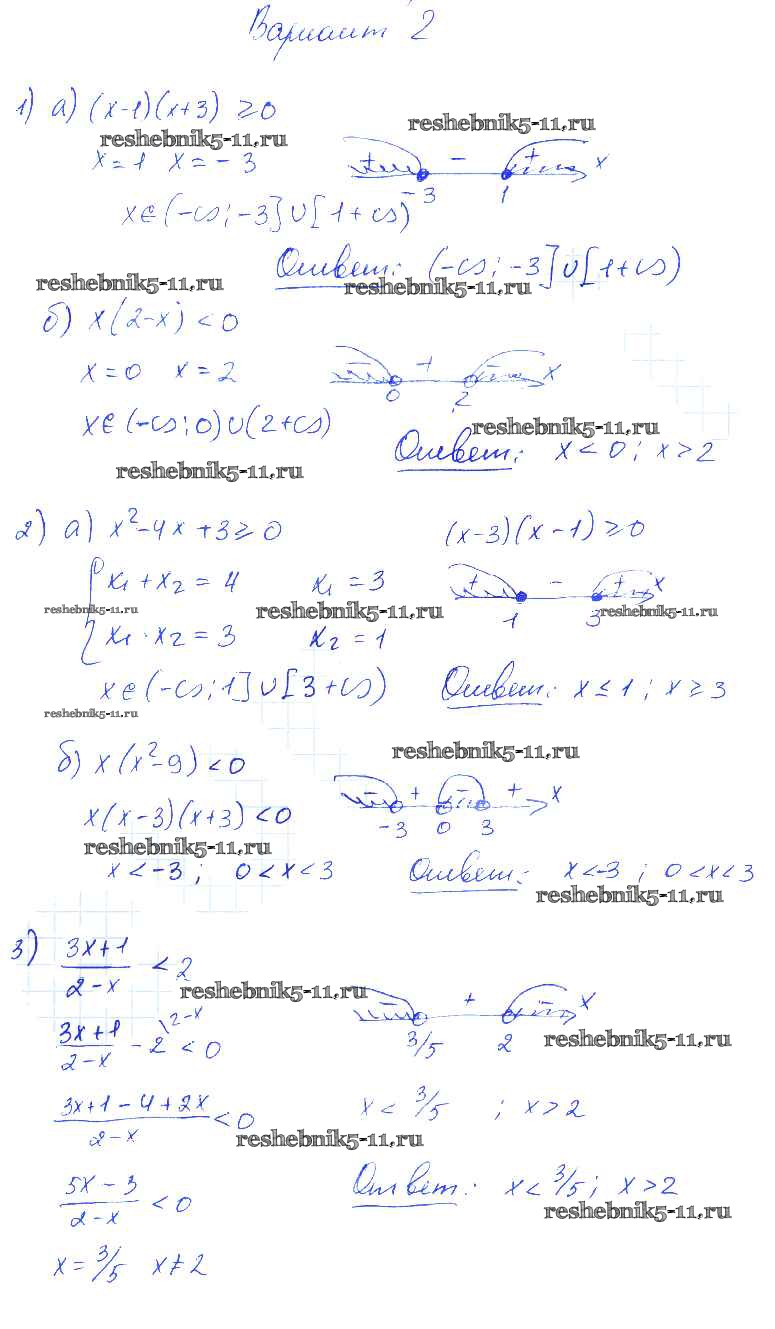 Вариант 2
1) а) (x-1)(x+3) ≥0
reshebnik5-11.ru
reshebnik5-11.ru
x=1 x=-3
+ - + x
-3 1
x∈(-∞;-3]∪[1+∞)
Ответ: (-∞;-3]∪[1+∞)
reshebnik5-11.ru
reshebnik5-11.ru
б) x(2-x) <0
x=0 x=2
- + - x
0 2
x∈(-∞;0)∪(2+∞)
reshebnik5-11.ru
Ответ: x<0; x>2
reshebnik5-11.ru
2) а) x²-4x+3≥0 (x-3)(x-1)≥0
x₁+x₂=4 x₁=3
+ - + x
1 3
reshebnik5-11.ru
reshebnik5-11.ru
reshebnik5-11.ru
x₁·x₂=3 x₂=1
x∈(-∞;1]∪[3+∞) Ответ: x≤1; x≥3
reshebnik5-11.ru
reshebnik5-11.ru
б) x(x²-9)<0
- + - + x
-3 0 3
x(x-3)(x+3)<0
reshebnik5-11.ru
x<-3; 0<x<3 Ответ: x<-3; 0<x<3
reshebnik5-11.ru
3) (3x+1)/(2-x) <2
reshebnik5-11.ru
- + - x
3/5 2
(3x+1)/(2-x) - 2\2-x <0
reshebnik5-11.ru
(3x+1-4+2x)/(2-x) <0 x<3/5; x>2
reshebnik5-11.ru
(5x-3)/(2-x) <0 Ответ: x<3/5; x>2
reshebnik5-11.ru
x=3/5 x≠2